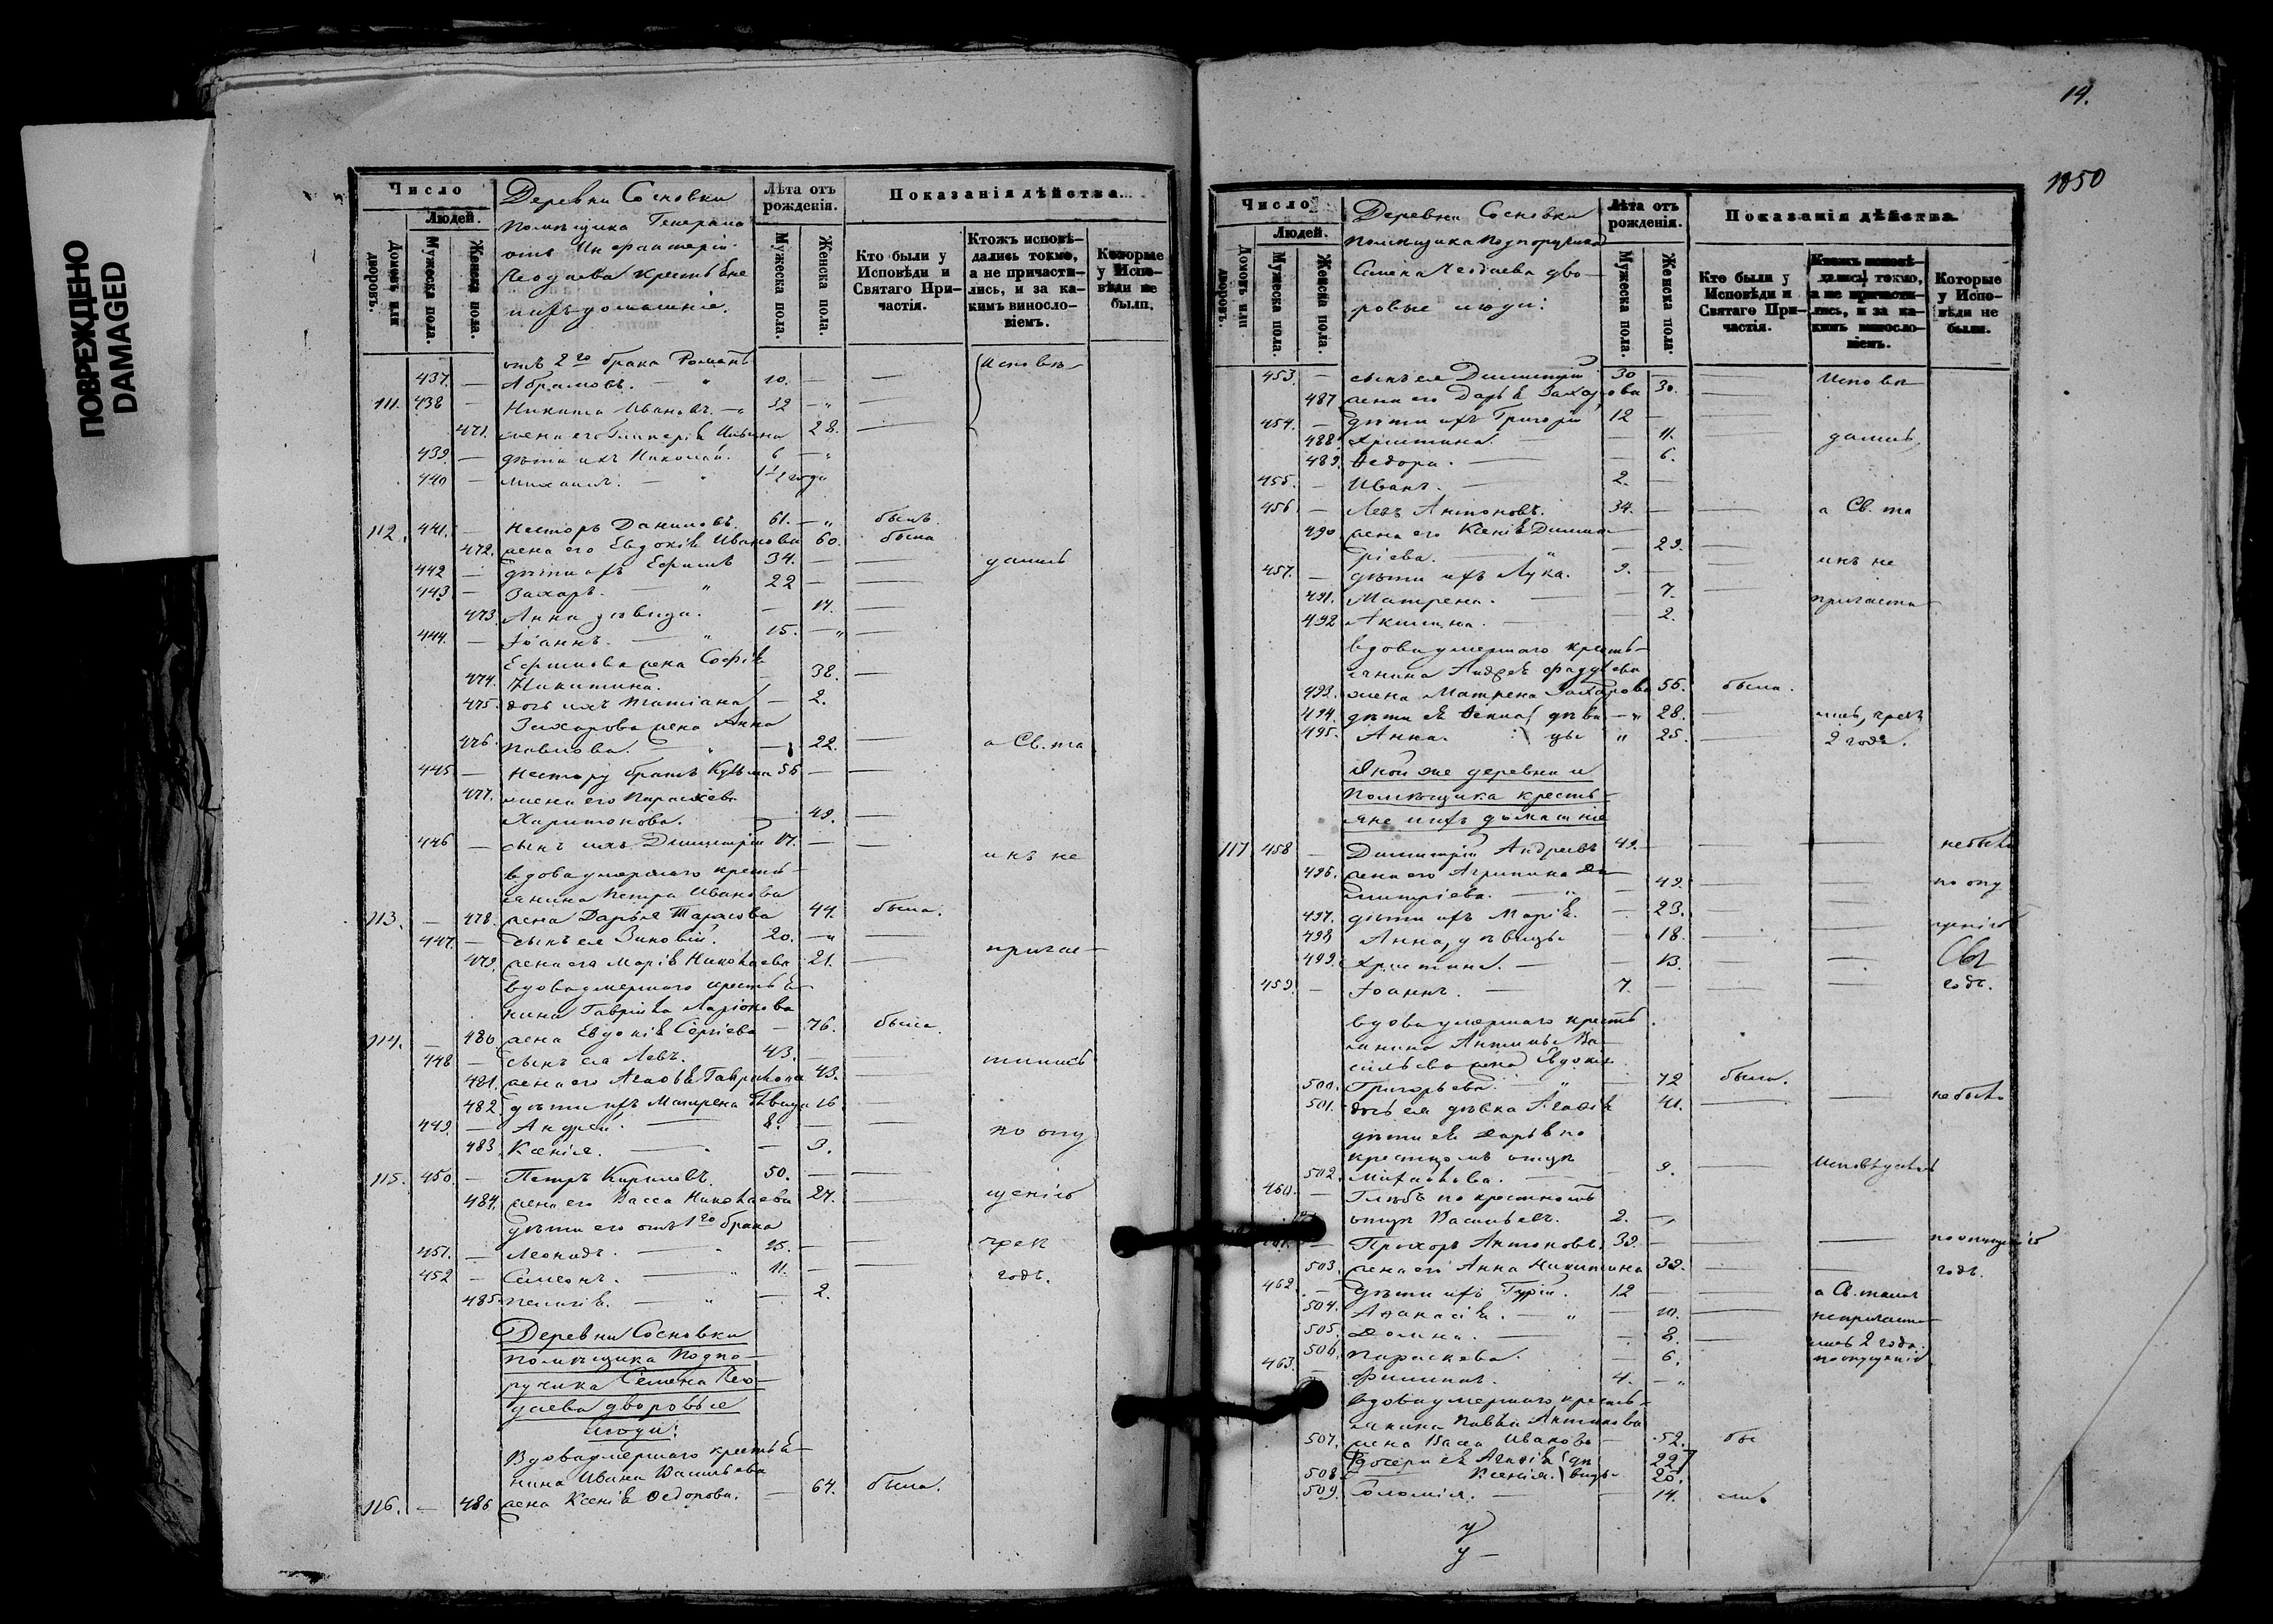 ПОВРЕЖДЕНО
DAMAGED
Число
Людей.
Домовъ или дворовъ.
Мужеска пола.
Женска пола.
Деревни Сосновки
помѣщика Генерала
отъ Инфантеріи
крестьяне
ихъ домашніе.
Лѣта отъ рожденія.
Мужеска пола.
Женска пола.
Показанія дѣйства.
Кто были у Исповѣди и Святаго Причастія.
Ктожъ исповѣдались токмо, а не причастились, и за какимъ винословіемъ.
Которые у Исповѣди не были.
отъ 2го брака Романъ
437. — Абрамовъ. — 10. — — Исповѣ-
111. 438 — Никита Ивановъ. — 32 — —
471. жена его Гликерія Ильина 28. —
439. — дѣти ихъ Николай. 6 —
440 — Михаилъ. — 1½ года
112. 441. — Несторъ Даниловъ. 61. — былъ.
472. жена его Евдокія Иванова 60. была
442 — дѣти ихъ Ефимъ 34. — — дались
443 — Захаръ. — 22 — —
473 Анна дѣвица. — 17. —
444. — Іоаннъ. — 15. — —
Ефимова жена Софія
474. Никитина. — 38. —
475. дочь ихъ Татіана — 2.
Захарова жена Анна
476. Павлова. — 22. — а Св. та
445 — Нестору братъ Кузьма 55 — —
477. жена его Параскева
Харитонова. — 49. —
446 — сынъ ихъ Димитрій 17. — — инъ не
вдова умершаго кресть-
янина Петра Иванова
113. — 478. жена Дарья Тарасова 44. была.
447. — сынъ ея Зиновій. 20. — —
479. жена его Марія Николаева 21. — причас-
вдова умершаго крестья-
нина Гавріила Ларіонова
114. — 480. жена Евдокія Сергіева — 76. была.
448 — сынъ ея Левъ. 43. — тились
481. жена его Агафія Гаврилова 43. —
482. дѣти ихъ Матрена дѣвица 16 —
449. — Андрей. — 8. — по опу
483. Ксенія. — — 3.
115. 450. — Петръ Кириловъ. 50. — —
484. жена его Васса Николаева 27. — щенію
дѣти его отъ 1го брака
451. — Леонидъ. — 25. — — трех
452 — Симеонъ. — 11. — — годъ.
485. Пелагія. — — 2.
Деревни Сосновки
помѣщика Подпо-
ручика Семена
дворовые
люди:
Вдова умершаго крестья-
нина Ивана Васильева
116. — 486 жена Ксенія Федорова. — 64. была.
14.
1850
Число
Людей.
Домовъ или дворовъ.
Мужеска пола.
Женска пола.
Деревни Сосновки
помѣщика Подпоручика
Семена дво-
ровые люди:
Лѣта отъ рожденія.
Мужеска пола.
Женска пола.
Показанія дѣйства.
Кто были у Исповѣди и Святаго Причастія.
Ктожъ исповѣдались токмо, а не причастились, и за какимъ винословіемъ.
Которые у Исповѣди не были.
453. — сынъ ея Димитрій 30 — — Исповѣ-
487 жена его Дарья Захарова 30. —
454. — дѣти ихъ Григорій 12 — —
488. Христина. — — 11. дались,
489. Федора. — — 6.
455. — Иванъ. — 2. —
456 — Левъ Антоновъ. 34. — — а Св. та
490 жена его Ксенія Дими-
тріева. — — 29. — инъ не
457. — дѣти ихъ Лука. 9. —
491. Матрена. — — 7. — причасти-
492 Акилина. — — 2.
вдова умершаго кресть-
янина Андрея
493. жена Матрена Захарова 55. была.
494. дѣти ея Фекла дѣви — 28. — лись, чрезъ
495. Анна. цы 25. — 2 года.
Оной же деревни и
помѣщика кресть-
яне ихъ домашніе
117 458 — Димитрій Андреевъ 49. — — — не были
496. жена его Агрипина Ди-
митріева. — — 49. — — по опу
497. дѣти ихъ Марія. — 23. —
498 Анна, дѣвицы — 18. — — щенію
499. Христина. — — 13. —
459. — Іоаннъ. — 7. — — — годъ.
вдова умершаго кресть
янина Антипы Ва-
сильева жена Евдокія
500. Григорьева. — — 72 была.
501. дочь ея дѣвка Агафія 41. — — не была
дѣти ея Дарья по
крестномъ отцѣ
502. Михайлова. — — 9. —
460. — Глѣбъ по крестномъ
отцѣ Васильевъ. 2. —
— Прохоръ Антоновъ. 39. — — по опущенію
503. жена его Анна Никитина 39. — — годъ.
462. — дѣти ихъ Гурій. 12 — — а Св. таинъ
504. Афанасія. — — 10. — не причасти-
505. Домна. — — 8. — лись 2 года.
506. Параскева. — 6. по опущенію
463. Филиппъ. 4. —
вдова умершаго кресть-
янина Павла Антонова
507. жена Васса Иванова — 52. бы
дочери ея Агафія дѣ 22
508. Ксенія. вицы 20.
509. Соломія. — — 14. ли.